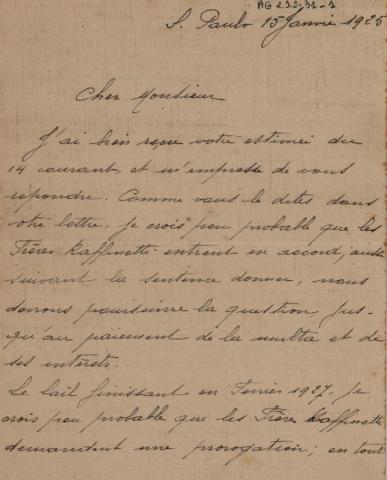 AG 233-31-1
S. Paulo 15 Janvier 1925
Cher Monsieur
J'ai bien reçu votre estimée du
14 courant, et m'empresse de vous
répondre. Comme vous le dites dans
votre lettre, je crois peu probable que les
Frères Raffinetti entrent en accord,
suivant la sentence donner, nous
devons poursuivre la question, jus-
qu'au paiement de la multa et de
ses intérets.
Le bail finissant en Fevrier 1927, je
crois peu probable que les Frère Raffinetti
demandent une prorogation; en tout